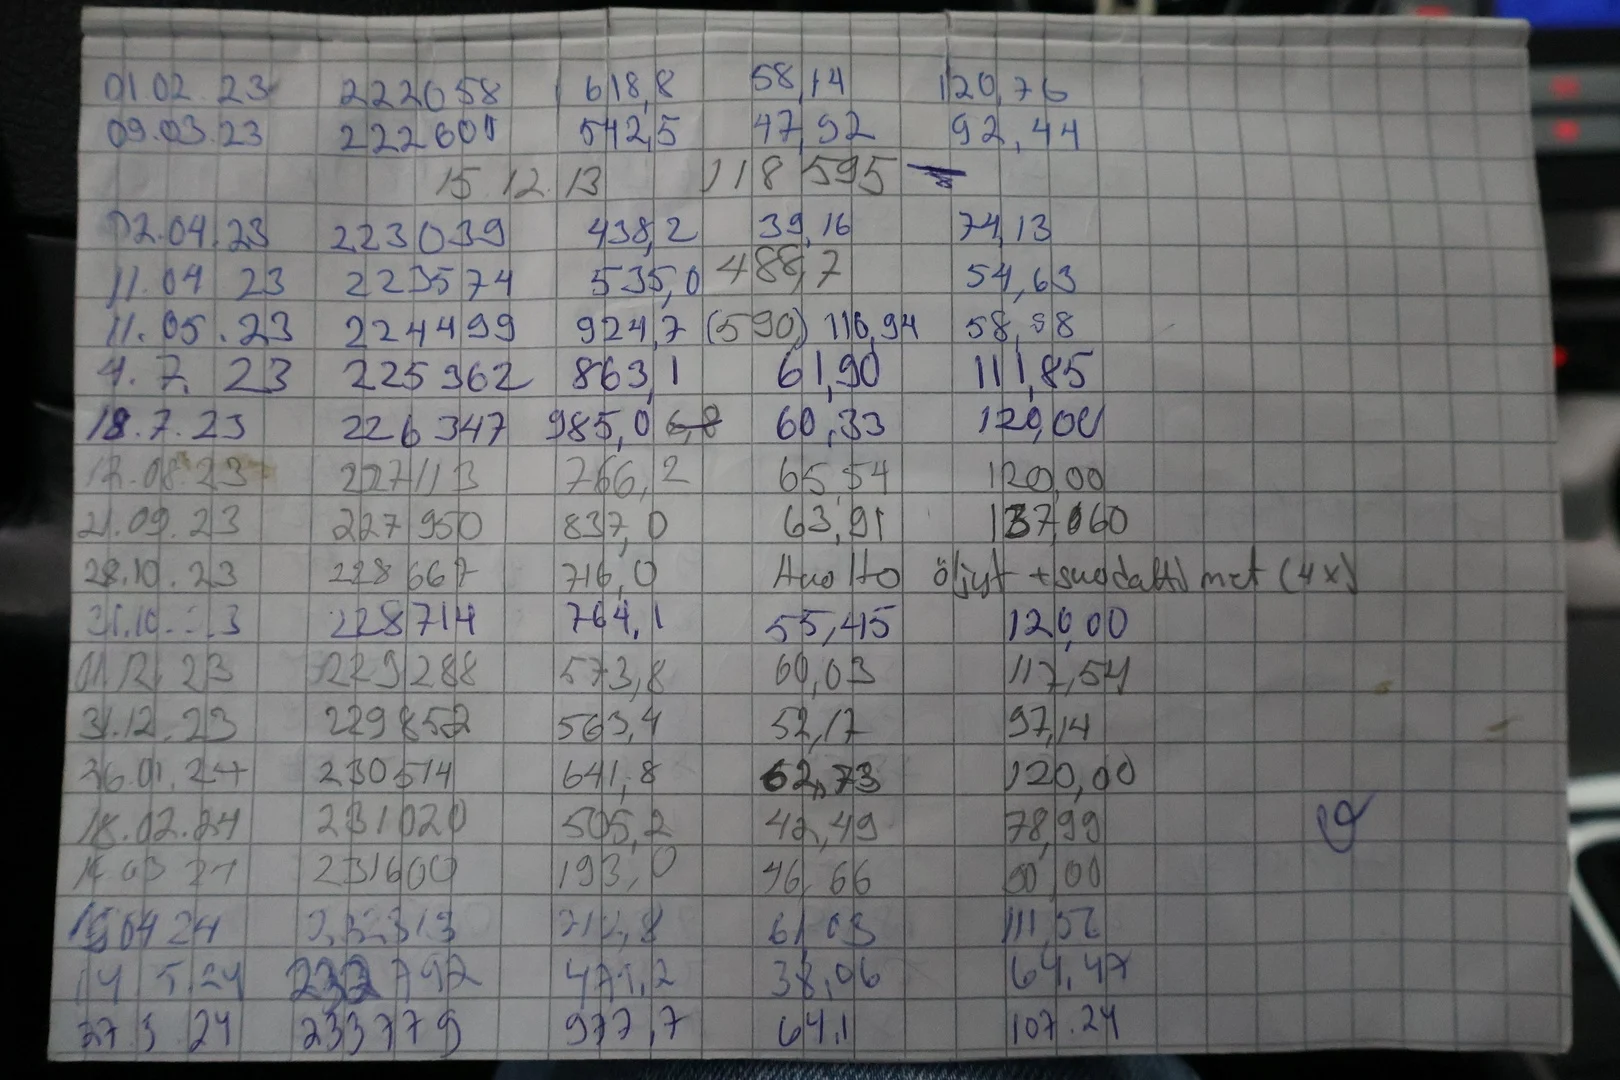 01 02. 23 222058 618,8 58,14 120,76
09.03.23 222601 542,5 47,92 92,44
15.12.13 118 595
02.04.23 223039 438,2 39,16 74,13
11.04 23 223574 535,0 488,7 54,63
11.05.23 224499 924,7 (590) 116,94 58,98
4.7. 23 225362 863,1 61,90 111,85
18.7.23 226347 985,0 60,33 120,00
227113 766,2 65,54 120,00
21.09.23 227950 837,0 63,91
28.10.23 228667 716,0 Huolto öljyt + suodattimet (4x)
228714 764,1 55,45 120,00
01.12.23 229288 573,8 60,03 117,54
31.12.23 229852 563,4 52,17 97,14
230514 641,8 62,73 120,00
18.02.24 231020 505,2 42,49 78,99
231600 193,0 46,66
04 24 61,03
14 5.24 232792 471,2 38,06 64,47
233779 977,7 64,1 107.24